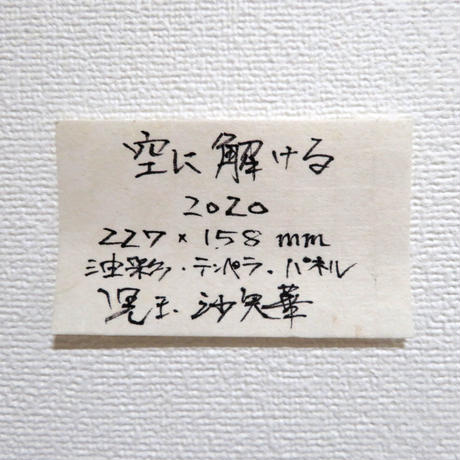 空に解ける
2020
227×158mm
油彩・テンペラ・パネル
児玉沙矢華